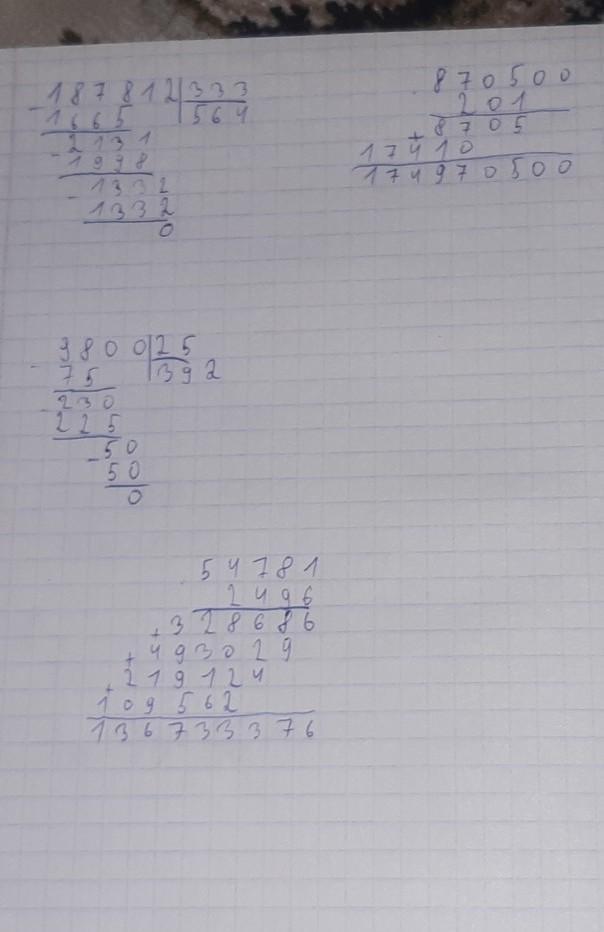 - 187812 | 333
1665 | 564
2131
- 1998
1332
- 1332
0
870500
201
+ 8705
17410
174970500
- 9800 | 25
75 | 392
- 230
225
- 50
50
0
54781
2496
+ 328686
+ 493029
+ 219124
109562
136733376